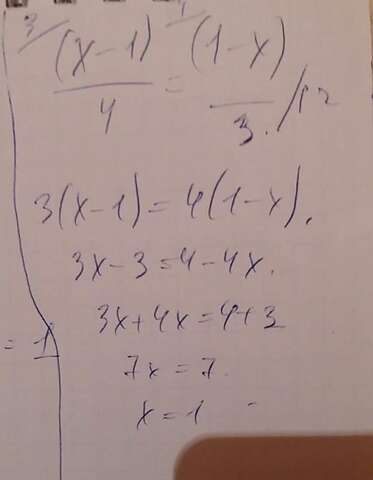 (x-1)/4 = (1-x)/3 /12
3(x-1)=4(1-x).
3x-3=4-4x.
3x+4x=4+3
= 1
7x=7.
x=1